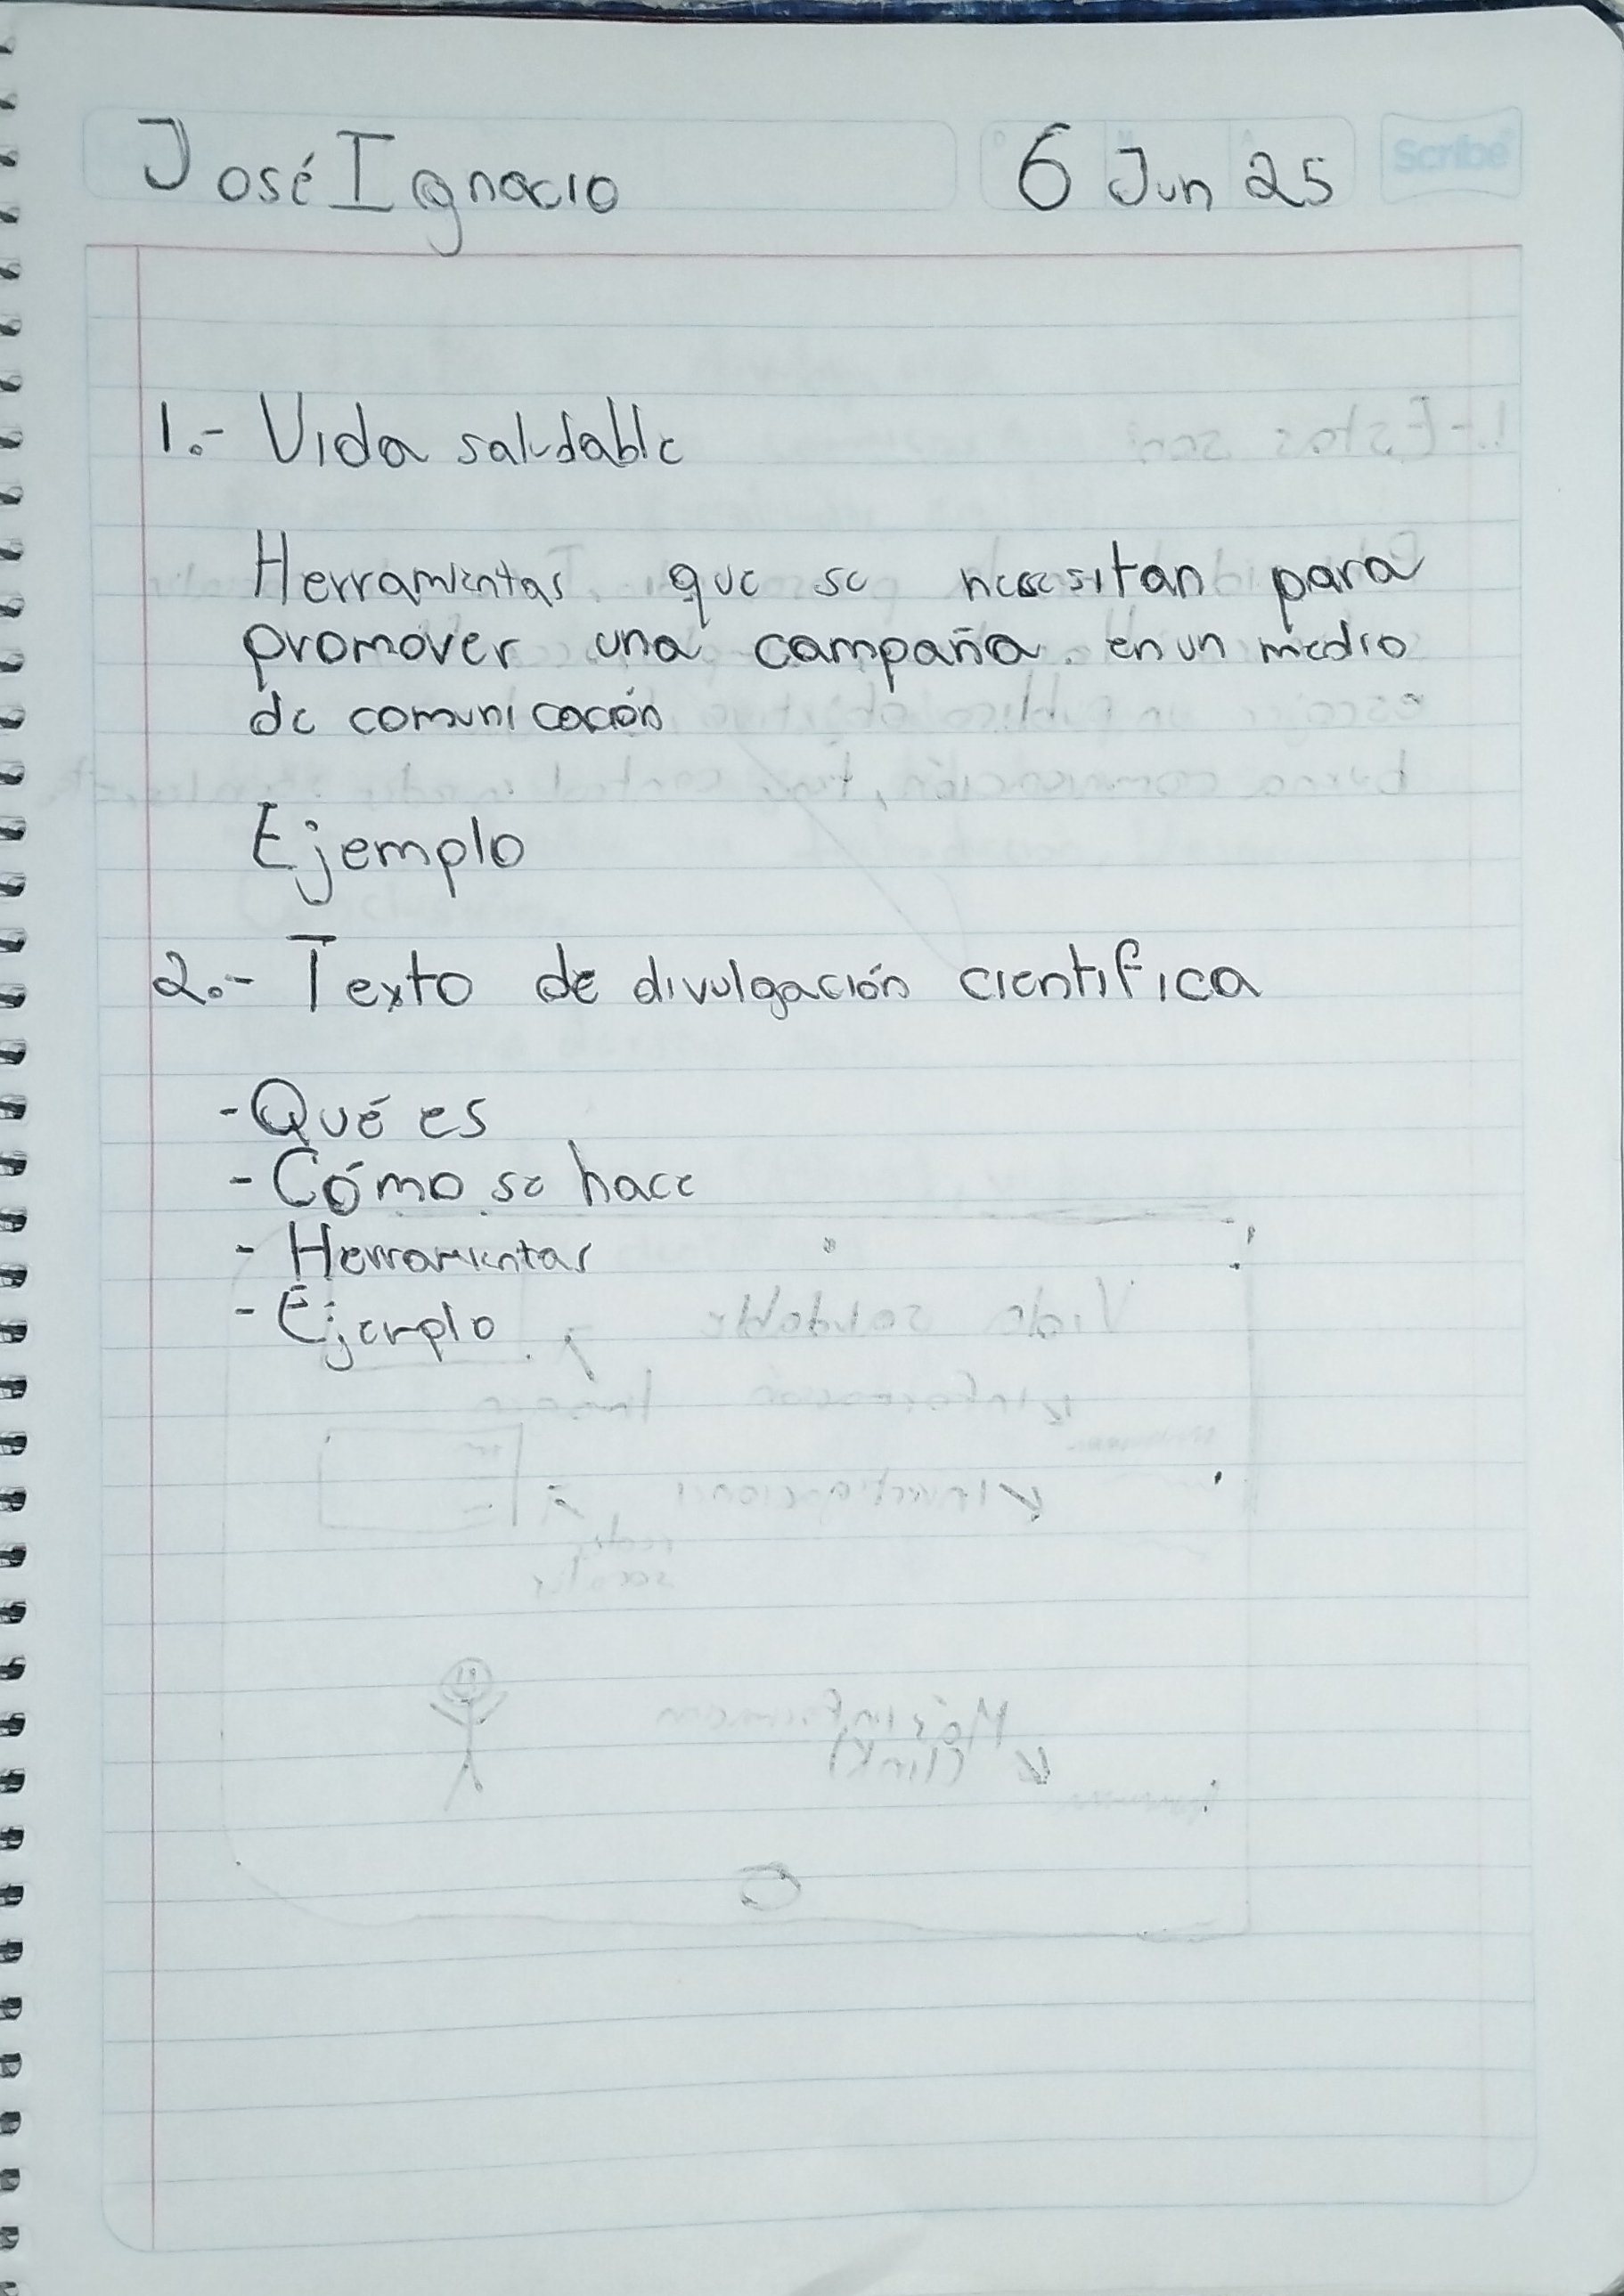 José Ignacio 6 Jun 25 Scribe
1.- Vida saludable
Herramientas que se necesitan para
promover una campaña en un medio
de comunicación
Ejemplo
2.- Texto de divulgación científica
- Qué es
- Cómo se hace
- Herramientas
- Ejemplo